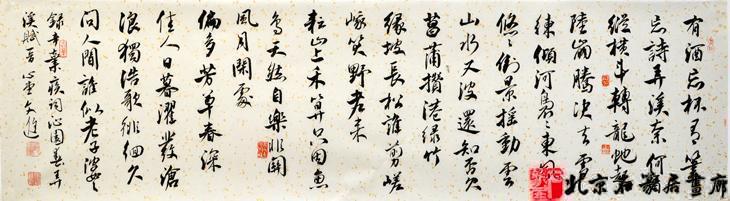 有酒忘杯有筆
忘詩弄溪奈何
縱橫斗轉龍蛇起
陸崩騰決去雪
練傾河裊裊東風
悠悠倒景搖動雲
山水又波還知否欠
菖蒲攢港綠竹
緣坡長松誰剪嵯
峨笑野老來
耘山上禾算只因魚
鳥天然自樂非關
風月閑處
偏多芳草春深
佳人日暮濯髮滄
浪獨浩歌徘徊久
問人間誰似老子婆娑
錄辛棄疾詞沁園春弄
溪賦
北京 居画廊